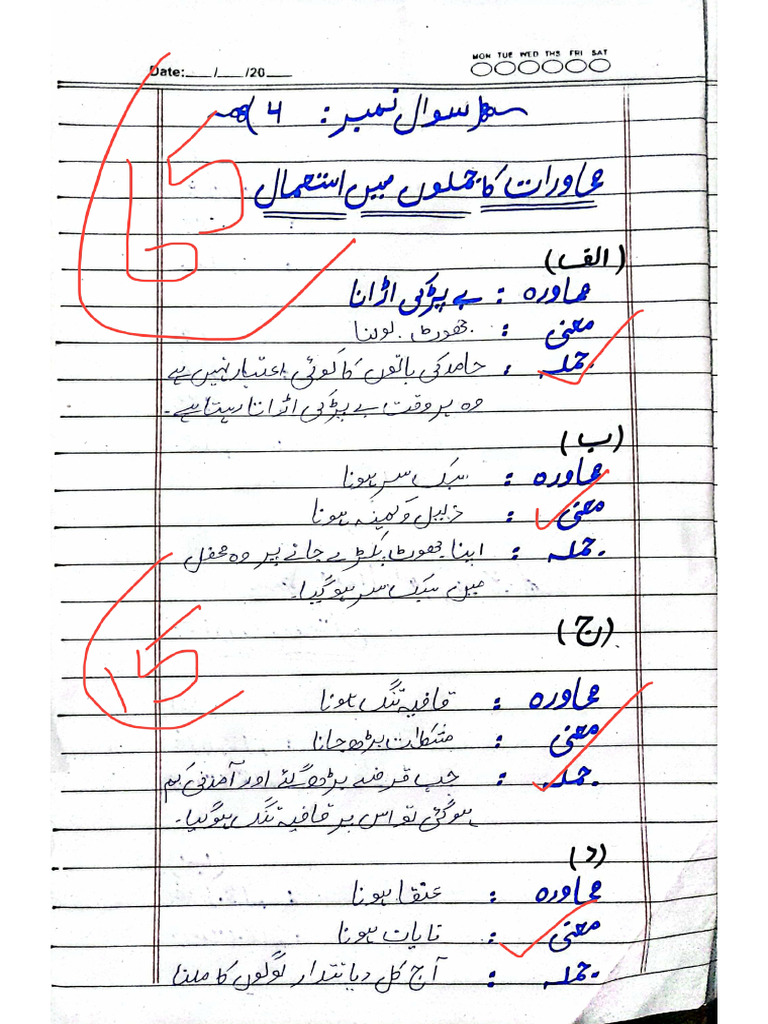 MON TUE WED THS FRI SAT
Date:___/___/20___
(سوال نمبر : 4)
15
محاورات کا جملوں میں استعمال
(الف)
محاورہ : بے پَڑ کی اڑانا
معنی : جھوٹ بولنا
جملہ : حامد کی باتوں کا کوئی اعتبار نہیں ہے
وہ ہر وقت بے پڑ کی اڑاتا رہتا ہے۔
(ب)
محاورہ : سبک سر ہونا
معنی : ذلیل و کمینہ ہونا
جملہ : اپنا جھوٹ پکڑے جانے پر وہ محفل
میں سبک سر ہوگیا۔
(ج)
15
محاورہ : قافیہ تنگ ہونا
معنی : مشکلات بڑھ جانا
جملہ : جب قرضے بڑھ گئے اور آمدنی کم
ہوگئی تو اس پر قافیہ تنگ ہوگیا۔
(د)
محاورہ : عنقا ہونا
معنی : نایاب ہونا
جملہ : آج کل دیانتدار لوگوں کا ملنا